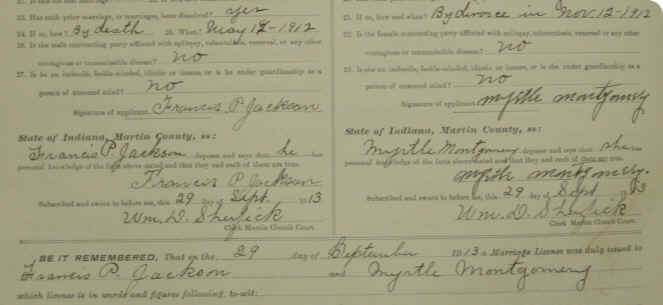 23. Has such prior marriage, or marriages, been dissolved? yes
24. If so, how? By death 25. When? May 12 - 1912
26. Is the male contracting party afflicted with epilepsy, tuberculosis, venereal, or any other
contagious or transmissible disease? no
27. Is he an imbecile, feeble-minded, idiotic or insane, or is he under guardianship as a
person of unsound mind? no
Signature of applicant Francis P. Jackson
State of Indiana, Martin County, ss:
Francis P. Jackson deposes and says that he has
personal knowledge of the facts above stated and that they and each of them are true.
Francis P Jackson
Subscribed and sworn to before me, this 29 day of Sept. 1913
Wm. D. Sherfick
Clerk Martin Circuit Court.
21. If so, how and when? By divorce in Nov. 12 - 1912
22. Is the female contracting party afflicted with epilepsy, tuberculosis, venereal or any other
contagious or transmissible disease? no
23. Is she an imbecile, feeble-minded, idiotic or insane, or is she under guardianship as a
person of unsound mind? no
Signature of applicant Myrtle Montgomery
State of Indiana, Martin County, ss:
Myrtle Montgomery deposes and says that she has
personal knowledge of the facts above stated and that they and each of them are true.
Myrtle Montgomery.
Subscribed and sworn to before me, this 29 day of Sept 1913
Wm. D. Sherfick
Clerk Martin Circuit Court.
BE IT REMEMBERED, That on the 29 day of September 1913 a Marriage License was duly issued to
Francis P. Jackson and Myrtle Montgomery
which license is in words and figures following, to-wit: